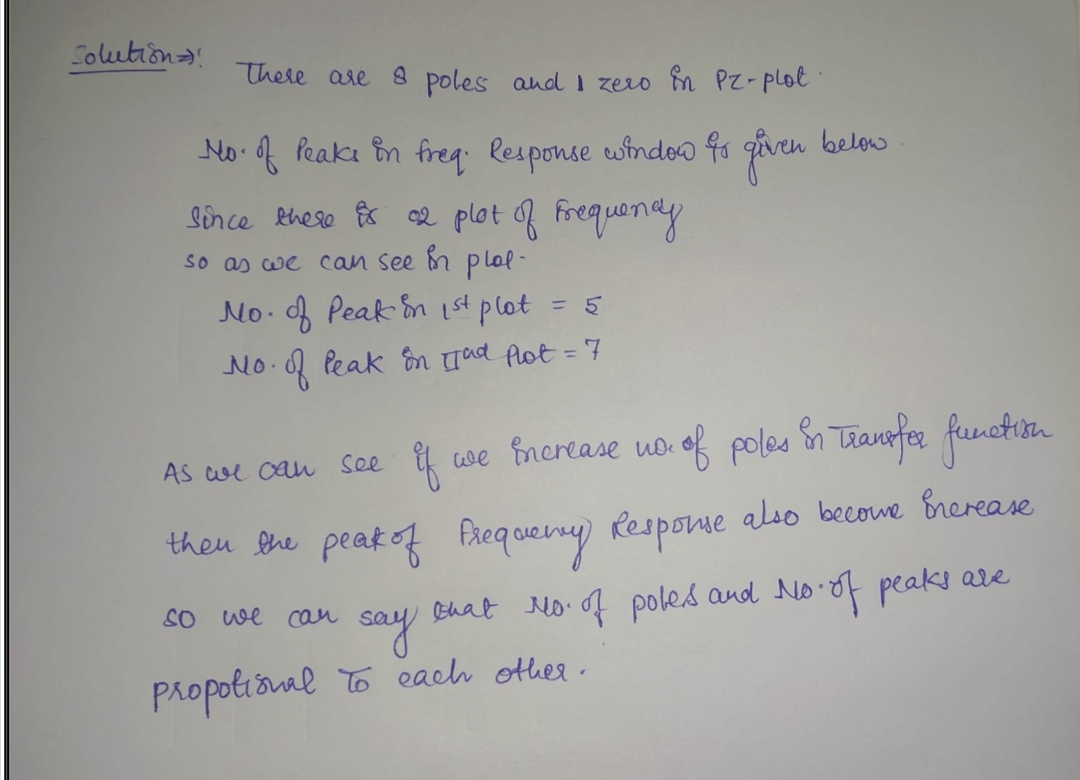 Solution⇒:
There are 8 poles and 1 zero in PZ-plot.
No. of Peaks in freq. Response window is given below.
Since there is 02 plot of Frequency
so as we can see in plot-
No. of Peak in 1st plot = 5
No. of Peak in IInd Plot = 7
As we can see if we increase no. of poles in Transfer function
then the peak of Frequency Response also become increase
so we can say that No. of poles and No. of peaks are
propotional To each other.